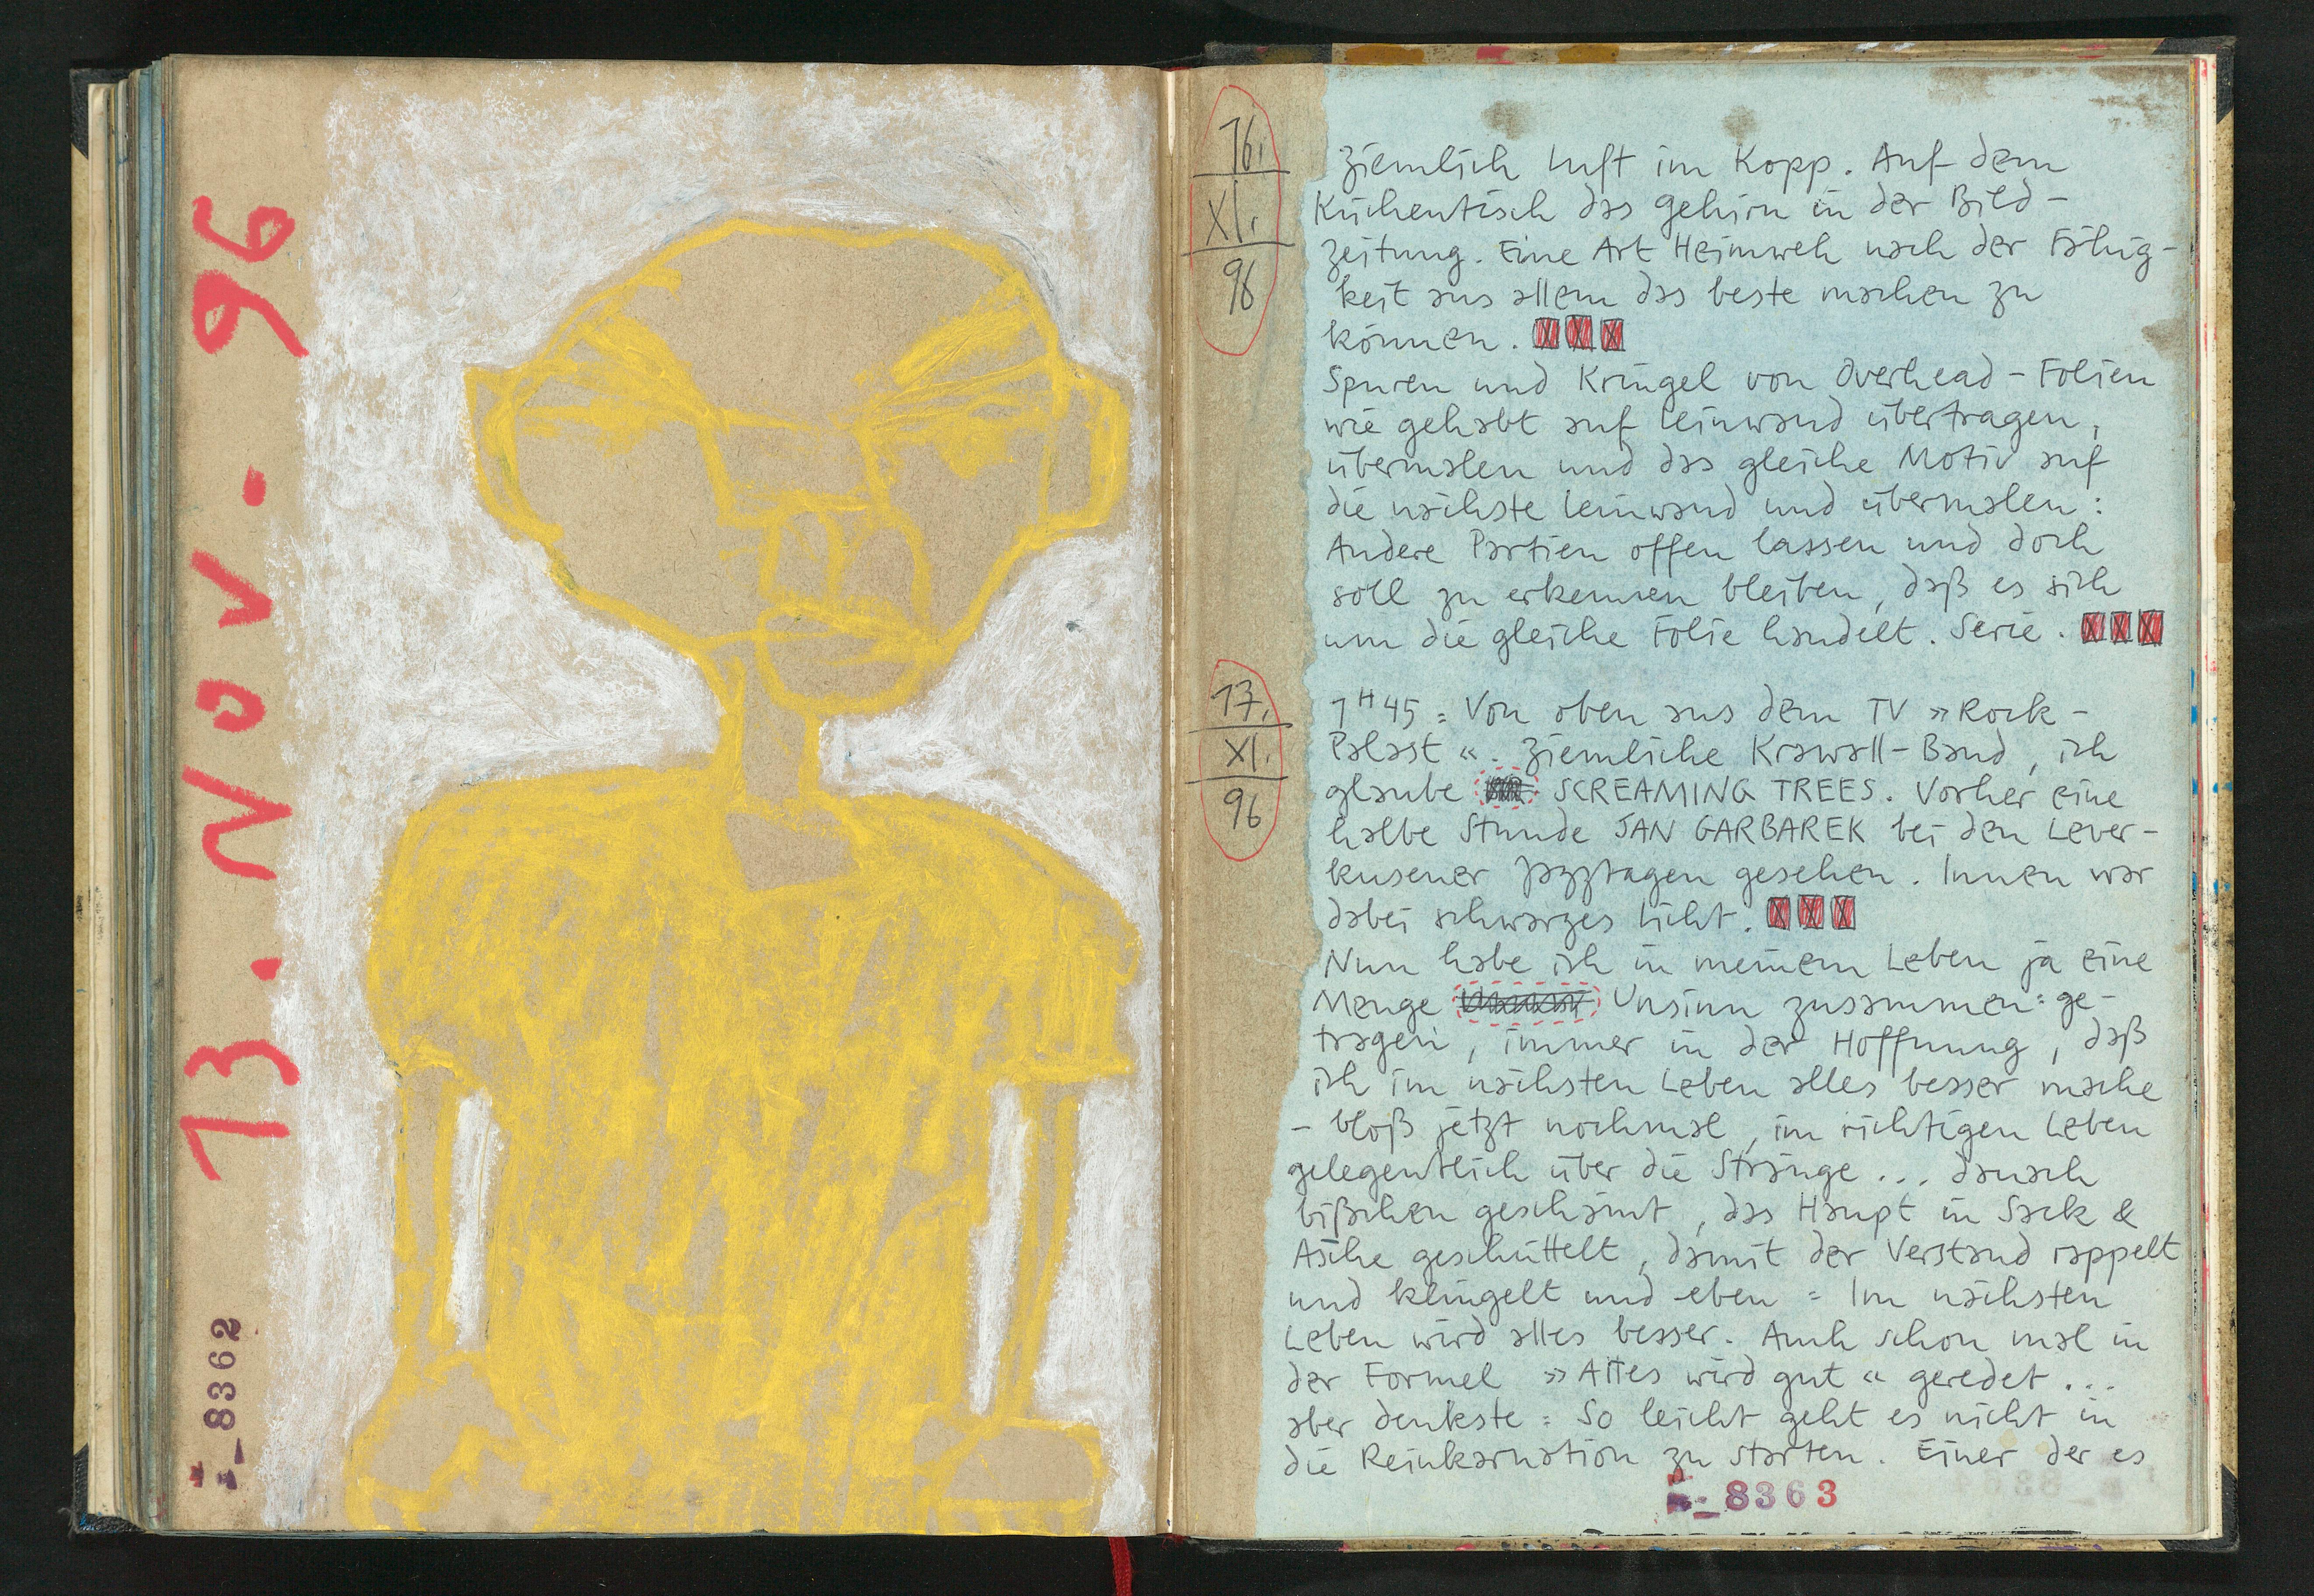 13. Nov - 96
8362
16.
XI.
96
Ziemlich Luft im Kopp. Auf dem
Küchentisch das Gehirn in der Bild-
zeitung. Eine Art Heimweh nach der Fähig-
keit aus allem das beste machen zu
können. XXX
Spuren und Kringel von Overhead-Folien
wie gehabt auf Leinwand übertragen,
übermalen und das gleiche Motiv auf
die nächste Leinwand und übermalen:
Andere Partien offen lassen und doch
soll zu erkennen bleiben, daß es sich
um die gleiche Folie handelt. Serie. XXX
17.
XI.
96
1H45: Von oben aus dem TV »Rock-
Palast«. Ziemliche Krawall-Band, ich
glaube SCREAMING TREES. Vorher eine
halbe Stunde JAN GARBAREK bei den Lever-
kusener Jazztagen gesehen. Innen war
dabei schwarzes Licht. XXX
Nun habe ich in meinem Leben ja eine
Menge Unsinn zusammen:ge-
tragen, immer in der Hoffnung, daß
ich im nächsten Leben alles besser mache
- bloß jetzt nochmal, im richtigen Leben
gelegentlich über die Stränge... danach
bißchen geschämt, das Haupt in Sack &
Asche geschüttelt, damit der Verstand rappelt
und klingelt und eben: Im nächsten
Leben wird alles besser. Auch schon mal in
der Formel »Alles wird gut« geredet...
aber denkste: So leicht geht es nicht in
die Reinkarnation zu starten. Einer der es
8363